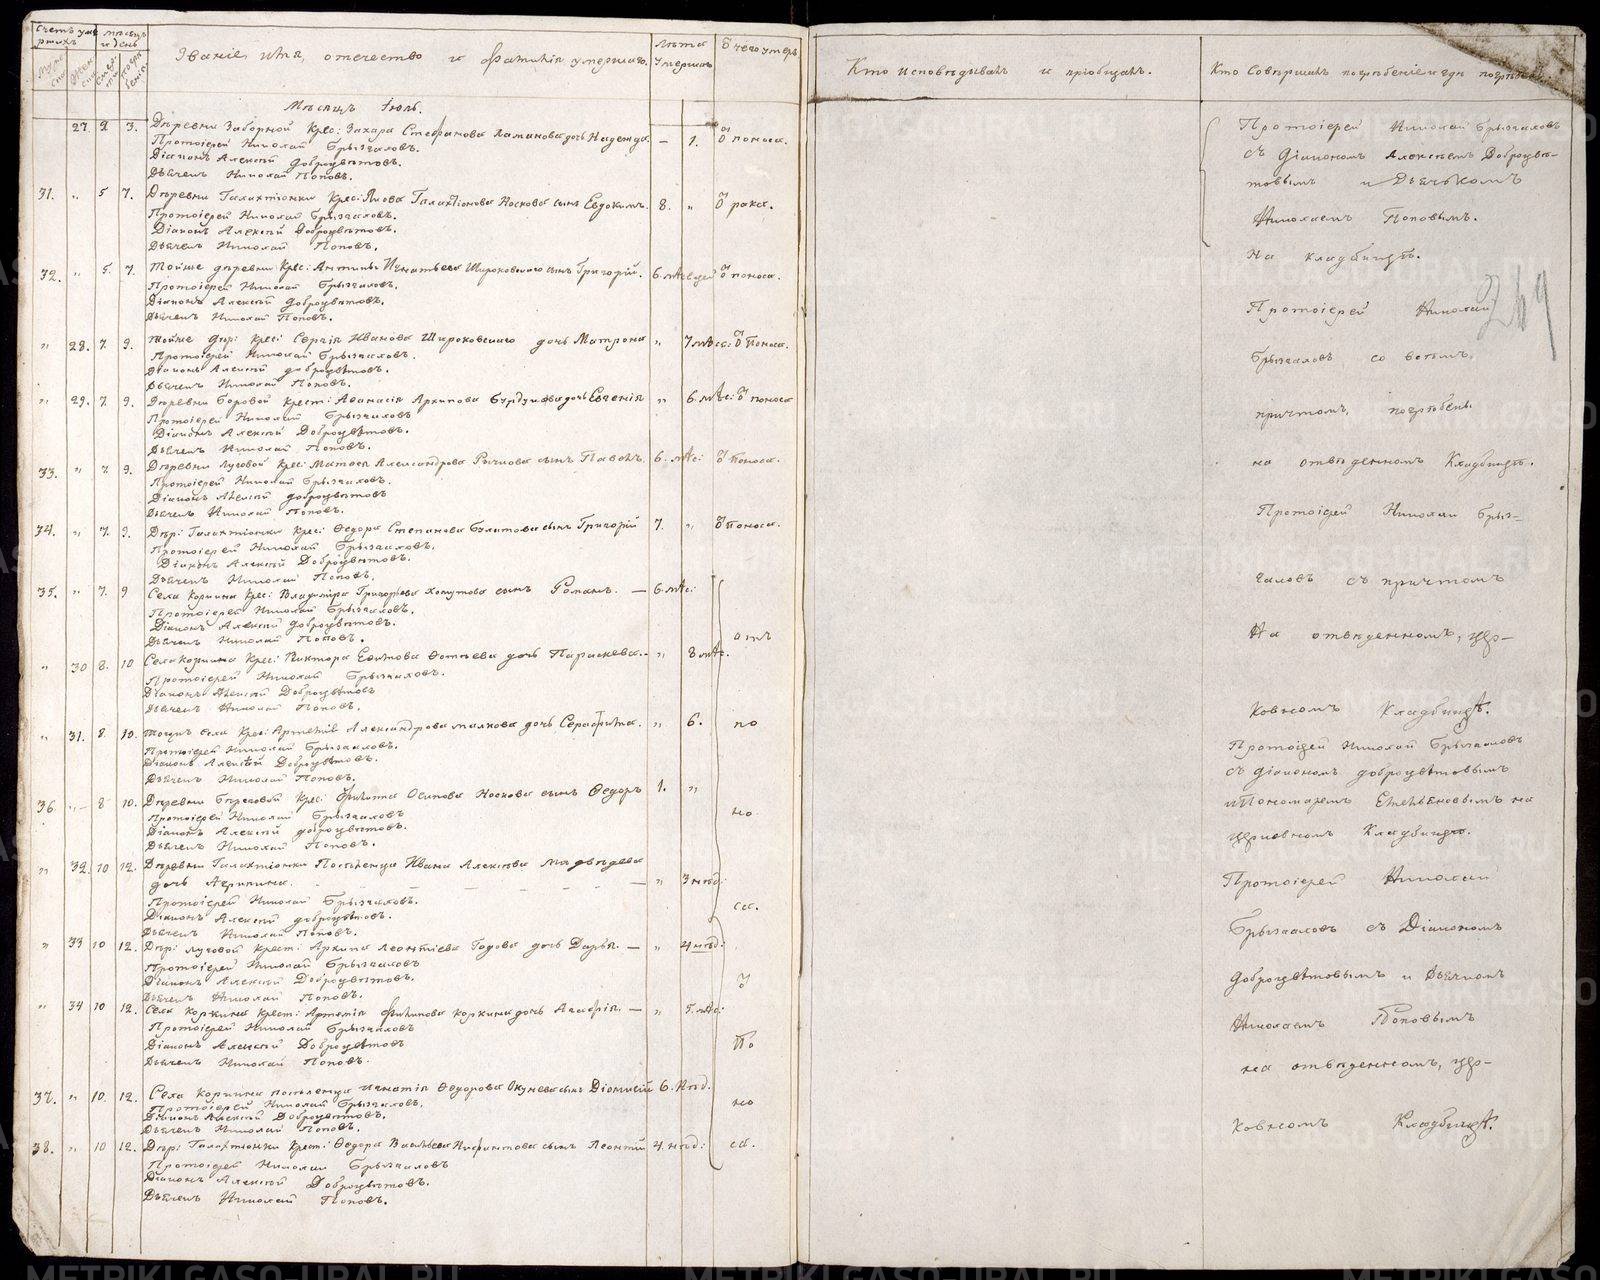 Счетъ умершихъ
Мѣсяцъ и день
Званіе, имя, отечество и фамилія умершаго.
Лѣта умершаго
Отчего умеръ
Кто исповѣдывалъ и пріобщалъ.
Кто совершалъ погребеніе и гдѣ погребены
Мѣсяцъ Іюль.
27. 2 3. Деревни Заборной Крес: Захара Стефанова дочь Надежда. — 1. Ѿ поноса.
Протоіерей Николай Брызгаловъ.
Діаконъ Алексѣй Доброцвѣтовъ.
Дьячекъ Николай Поповъ.
31. „ 5 7. Деревни Галактіонки Крес: Якова Галактіонова Носкова сынъ Евдокимъ. 8. „ Ѿ рака.
Протоіерей Николай Брызгаловъ.
Діаконъ Алексѣй Доброцвѣтовъ.
Дьячекъ Николай Поповъ.
32. „ 5. 7. Тойже деревни Крес: Антипы Игнатьева Широковскаго сынъ Григорій. 6. Ѿ поноса.
Протоіерей Николай Брызгаловъ.
Діаконъ Алексѣй Доброцвѣтовъ.
Дьячекъ Николай Поповъ.
„ 28. 7. 9. Тойже дер: Крес: Сергія Иванова Широковскаго дочь Матрона „ 7 мѣс: Ѿ Поноса.
Протоіерей Николай Брызгаловъ.
Діаконъ Алексѣй Доброцвѣтовъ.
Дьячекъ Николай Поповъ.
„ 29. 7. 9. Деревни Боровой Крест: Аѳанасія Архипова дочь Евгенія „ 6 мѣс: Ѿ поноса
Протоіерей Николай Брызгаловъ
Діаконъ Алексѣй Доброцвѣтовъ.
Дьячекъ Николай Поповъ.
33. „ 7. 9. Деревни Луговой Крес: Матвея Александрова Рычкова сынъ Павелъ. 6. мѣс: Ѿ Поноса.
Протоіерей Николай Брызгаловъ.
Діаконъ Алексѣй Доброцвѣтовъ
Дьячекъ Николай Поповъ.
34. „ 7. 9. Дер: Галактіонки Крес: Ѳедора Степанова Булатова сынъ Григорій 7. „ Ѿ Поноса.
Протоіерей Николай Брызгаловъ.
Діаконъ Алексѣй Доброцвѣтовъ.
Дьячекъ Николай Поповъ.
35. „ 7. 9 Села Коркина Крес: Владиміра Григорьева Хомутова сынъ Романъ. — 6. мѣс:
Протоіерей Николай Брызгаловъ.
Діаконъ Алексѣй Доброцвѣтовъ.
Дьячекъ Николай Поповъ.
отъ
„ 30 8. 10 Села Коркина Крес: Виктора Ефимова Фотѣева дочь Параскева. — „ 8 мѣс.
Протоіерей Николай Брызгаловъ.
Діаконъ Алексѣй Доброцвѣтовъ
Дьячекъ Николай Поповъ.
по
„ 31. 8. 10. Тогожъ села Крес: Артемія Александрова Малкова дочь Серафима. „ 6.
Протоіерей Николай Брызгаловъ.
Діаконъ Алексѣй Доброцвѣтовъ.
Дьячекъ Николай Поповъ.
36 „ — 8 10. Деревни Береговой Крес: Филиппа Осипова Носкова сынъ Ѳедоръ 1. „
Протоіерей Николай Брызгаловъ
Діаконъ Алексѣй Доброцвѣтовъ.
Дьячекъ Николай Поповъ.
но
„ 32. 10 12. Деревни Галактіонки Поселенца Ивана Алексѣева Медвѣдева
дочь Агрипина. — „ 3 нед:
Протоіерей Николай Брызгаловъ.
Діаконъ Алексѣй Доброцвѣтовъ.
Дьячекъ Николай Поповъ.
са.
„ 33 10 12. Дер: Луговой Крест: Архипа Леонтіева Годова дочь Дарья. — „ 4 нед:
Протоіерей Николай Брызгаловъ
Діаконъ Алексѣй Доброцвѣтовъ.
Дьячекъ Николай Поповъ.
Ѿ
„ 34 10 12. Села Коркина Крест: Артемія Филипова Коркина дочь Агафія. — „ 5. мѣс:
Протоіерей Николай Брызгаловъ
Діаконъ Алексѣй Доброцвѣтовъ
Дьячекъ Николай Поповъ.
По
37. „ 10. 12. Села Коркина поселенца Игнатія Ѳедорова Окунева сынъ Діонисій 6. Нед.
Протоіерей Николай Брызгаловъ.
Діаконъ Алексѣй Доброцвѣтовъ.
Дьячекъ Николай Поповъ.
но
38. „ 10 12. Дер: Галактіонки Крест: Ѳедора Васильева сынъ Леонтій 4. нед:
са.
Протоіерей Николай Брызгаловъ
Діаконъ Алексѣй Доброцвѣтовъ.
Дьячекъ Николай Поповъ.
Протоіерей Николай Брызгаловъ
съ Діакономъ Алексѣемъ Доброцвѣ-
товымъ и Дьячькомъ
Николаемъ Поповымъ.
На кладбищѣ.
269
Протоіерей Николай
Брызгаловъ со всѣмъ,
причтомъ, погребены
на отведенномъ Кладбищѣ.
Протоіерей Николай Брыз-
галовъ съ причтомъ
На отведенномъ, цер-
ковномъ Кладбищѣ.
Протоіерей Николай Брызгаловъ
съ Діакономъ Доброцвѣтовымъ
и Пономаремъ Емельяновымъ на
церковномъ Кладбищѣ.
Протоіерей Николай
Брызгаловъ съ Діакономъ
Доброцвѣтовымъ и Дьячкомъ
Николаемъ Поповымъ
на отведенномъ, цер-
ковномъ Кладбищѣ.
METRIKI.GASO-URAL.RU